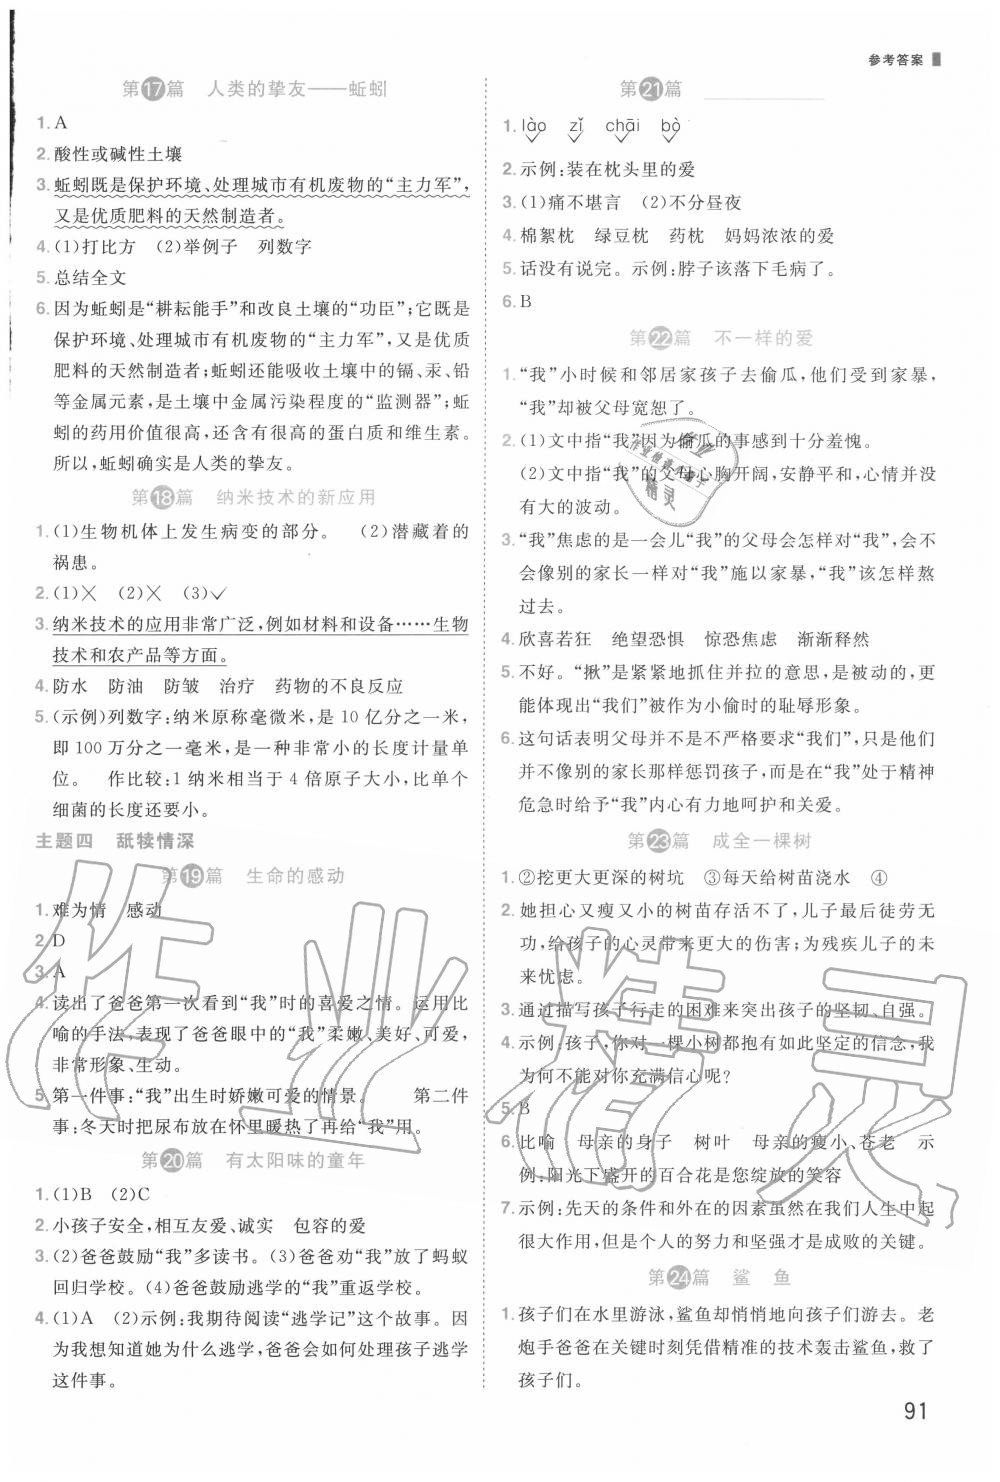 参考答案
第17篇 人类的挚友——蚯蚓
1. A
2. 酸性或碱性土壤
3. 蚯蚓既是保护环境、处理城市有机废物的“主力军”,
又是优质肥料的天然制造者。
4. (1)打比方 (2)举例子 列数字
5. 总结全文
6. 因为蚯蚓是“耕耘能手”和改良土壤的“功臣”;它既是
保护环境、处理城市有机废物的“主力军”,又是优质
肥料的天然制造者;蚯蚓还能吸收土壤中的镉、汞、铅
等金属元素,是土壤中金属污染程度的“监测器”;蚯
蚓的药用价值很高,还含有很高的蛋白质和维生素。
所以,蚯蚓确实是人类的挚友。
第18篇 纳米技术的新应用
1. (1)生物机体上发生病变的部分。 (2)潜藏着的
祸患。
2. (1)✕ (2)✕ (3)✓
3. 纳米技术的应用非常广泛,例如材料和设备……生物
技术和农产品等方面。
4. 防水 防油 防皱 治疗 药物的不良反应
5. (示例)列数字:纳米原称毫微米,是 10 亿分之一米,
即 100 万分之一毫米,是一种非常小的长度计量单
位。 作比较:1 纳米相当于 4 倍原子大小,比单个
细菌的长度还要小。
主题四 舐犊情深
第19篇 生命的感动
1. 难为情 感动
2. D
3. A
4. 读出了爸爸第一次看到“我”时的喜爱之情。运用比
喻的手法,表现了爸爸眼中的“我”柔嫩、美好、可爱,
非常形象、生动。
5. 第一件事:“我”出生时娇嫩可爱的情景。 第二件
事:冬天时把尿布放在怀里暖热了再给“我”用。
第20篇 有太阳味的童年
1. (1)B (2)C
2. 小孩子安全,相互友爱、诚实 包容的爱
3. (2)爸爸鼓励“我”多读书。(3)爸爸劝“我”放了蚂蚁
回归学校。(4)爸爸鼓励逃学的“我”重返学校。
4. (1)A (2)示例:我期待阅读“逃学记”这个故事。因
为我想知道她为什么逃学,爸爸会如何处理孩子逃学
这件事。
第21篇
1. lào zǐ chāi bò
2. 示例:装在枕头里的爱
3. (1)痛不堪言 (2)不分昼夜
4. 棉絮枕 绿豆枕 药枕 妈妈浓浓的爱
5. 话没有说完。示例:脖子该落下毛病了。
6. B
第22篇 不一样的爱
1. “我”小时候和邻居家孩子去偷瓜,他们受到家暴,
“我”却被父母宽恕了。
2. (1)文中指“我”因为偷瓜的事感到十分羞愧。
(2)文中指“我”的父母心胸开阔,安静平和,心情并没
有大的波动。
3. “我”焦虑的是一会儿“我”的父母会怎样对“我”,会不
会像别的家长一样对“我”施以家暴,“我”该怎样熬
过去。
4. 欣喜若狂 绝望恐惧 惊恐焦虑 渐渐释然
5. 不好。“揪”是紧紧地抓住并拉的意思,是被动的,更
能体现出“我们”被作为小偷时的耻辱形象。
6. 这句话表明父母并不是不严格要求“我们”,只是他们
并不像别的家长那样惩罚孩子,而是在“我”处于精神
危急时给予“我”内心有力地呵护和关爱。
第23篇 成全一棵树
1. ②挖更大更深的树坑 ③每天给树苗浇水 ④
2. 她担心又瘦又小的树苗存活不了,儿子最后徒劳无
功,给孩子的心灵带来更大的伤害;为残疾儿子的未
来忧虑。
3. 通过描写孩子行走的困难来突出孩子的坚韧、自强。
4. 示例:孩子,你对一棵小树都抱有如此坚定的信念,我
为何不能对你充满信心呢?
5. B
6. 比喻 母亲的身子 树叶 母亲的瘦小、苍老 示
例:阳光下盛开的百合花是您绽放的笑容
7. 示例:先天的条件和外在的因素虽然在我们人生中起
很大作用,但是个人的努力和坚强才是成败的关键。
第24篇 鲨 鱼
1. 孩子们在水里游泳,鲨鱼却悄悄地向孩子们游去。老
炮手爸爸在关键时刻凭借精准的技术轰击鲨鱼,救了
孩子们。
91
作业精灵